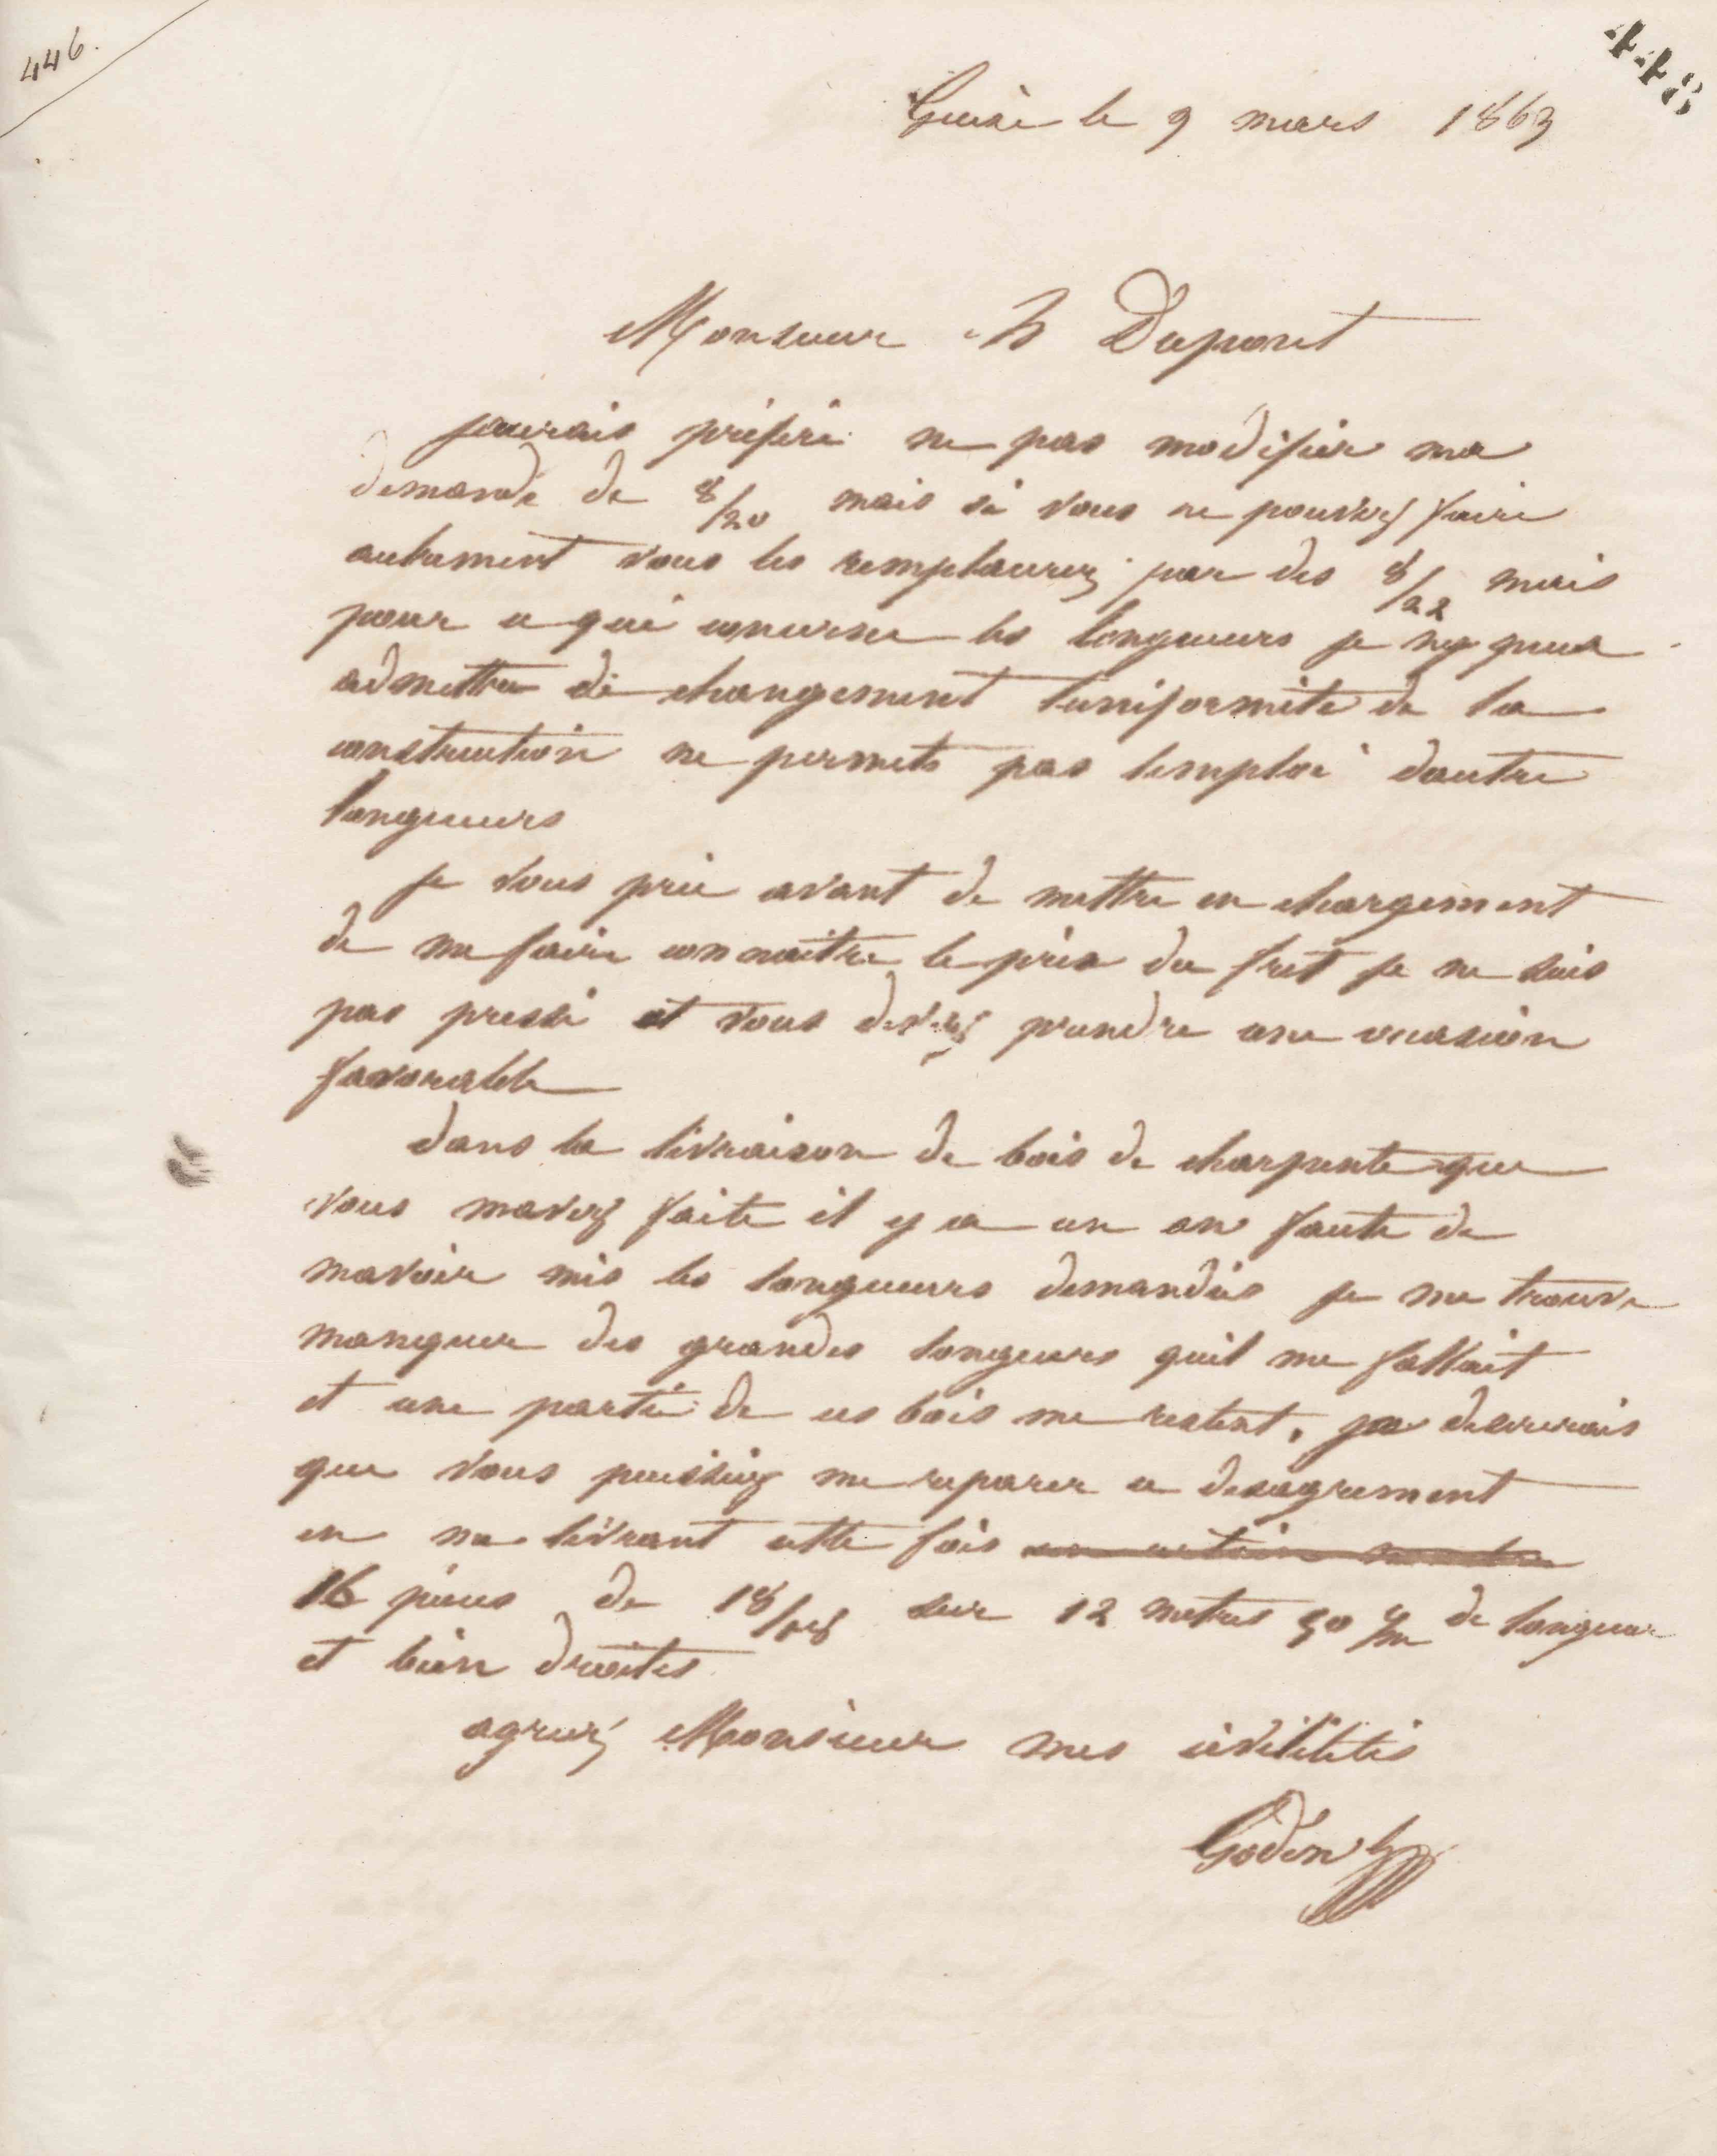 446.
448
Guise le 9 mars 1863
Monsieur h Dupont
jaurais préféré ne pas modifier ma
demande de 8/20 mais si vous ne pouviez faire
autrement vous les remplacerez par des 8/22 mais
pour ce qui concerne les longueurs je ny peux
admettre de changement luniformité de la
construction ne permets pas lemploi dautre
longueurs
je vous prie avant de mettre en chargement
de me faire connaitre le prix du fret je ne suis
pas pressé et vous devez prendre une occasion
favorable
dans la livraison de bois de charpente que
vous mavez faite il y a un an faute de
mavoir mis les longueurs demandées je me trouve
manquer des grandes longeurs quil me fallait
et une partie de ces bois me restent, je desirerais
que vous puissiez me reparer ce desagrement
en me livrant cette fois un certain nombre
16 pieces de 18/18 sur 12 metres 50 c/m de longueur
et bien droites
agreez Monsieur mes civilités
Godin